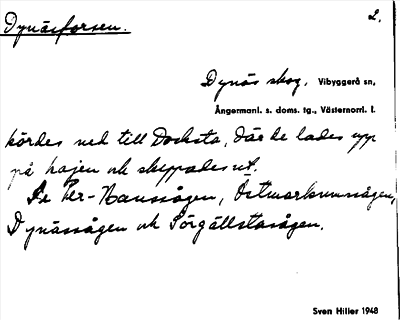 Dynäsforsen.
2.
Dynäs skog, Vibyggerå sn,
Ångermanl. s. doms. tg., Västernorrl. l.
kördes ned till Docksta, där de lades upp
på kajen och skeppades ut.
Se Per-Hanssågen, Östmarkumssågen,
Dynässågen och Sörgällstasågen.
Sven Hiller 1948